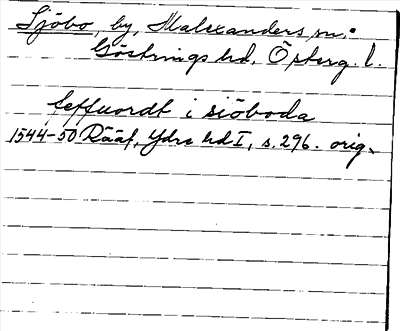 Sjöbo, by, Malexanders sn.
Göstrings hd, Österg. l.
leffuordt i siöboda
1544-50 Rääf, Ydre hd I, s. 296. orig.